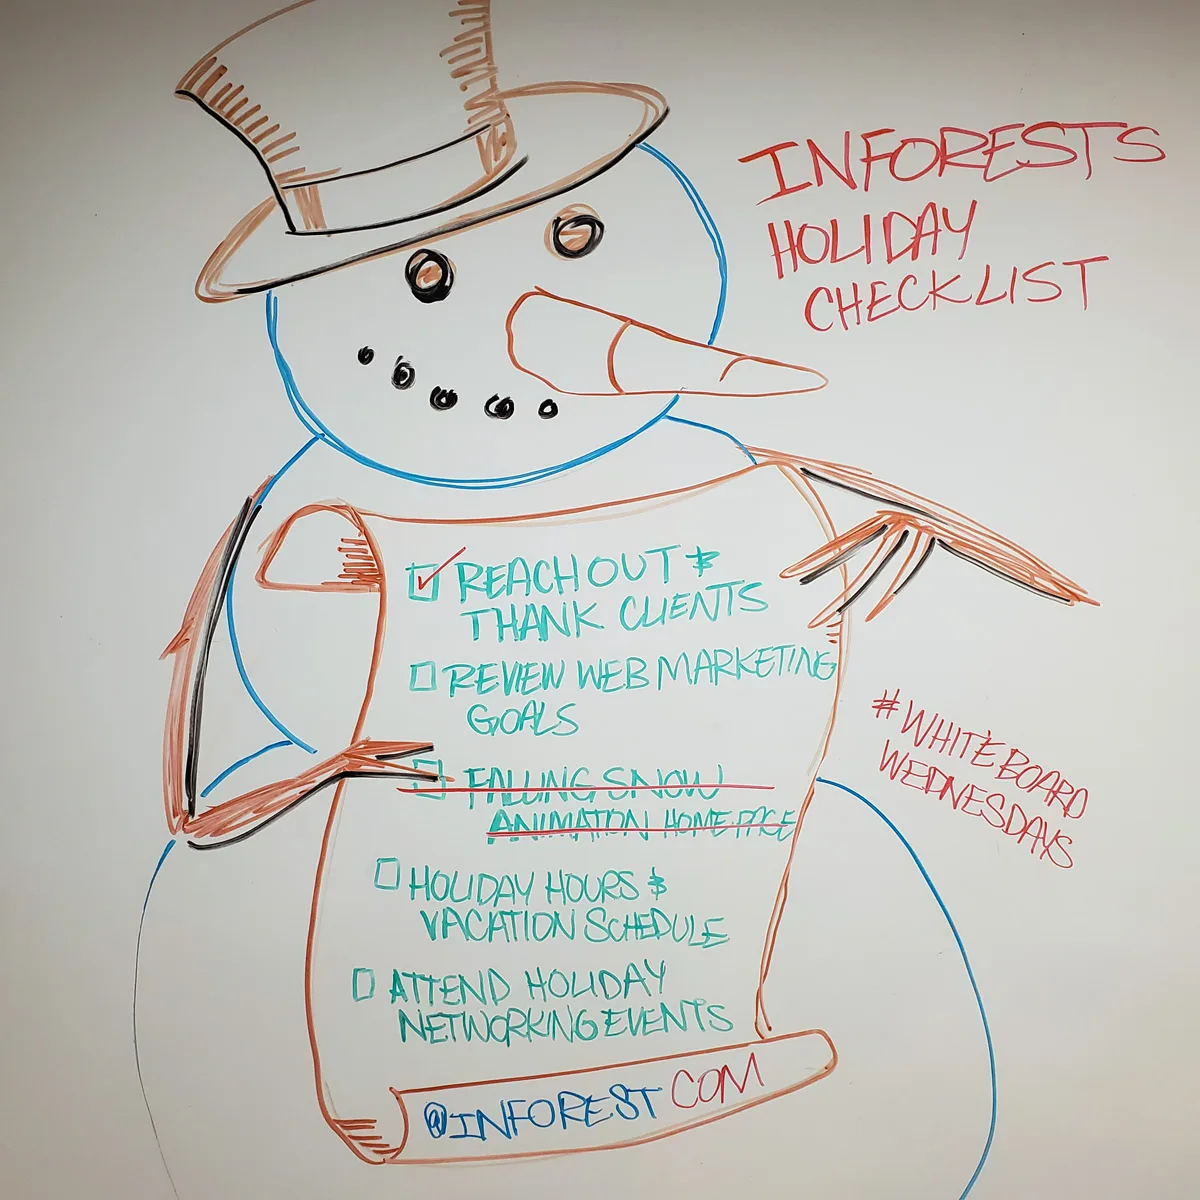 INFORESTS
HOLIDAY
CHECKLIST
REACH OUT &
THANK CLIENTS
REVIEW WEB MARKETING
GOALS
FALLING SNOW
ANIMATION HOMEPAGE
HOLIDAY HOURS &
VACATION SCHEDULE
ATTEND HOLIDAY
NETWORKING EVENTS
@INFOREST COM
#WHITEBOARD
WEDNESDAYS